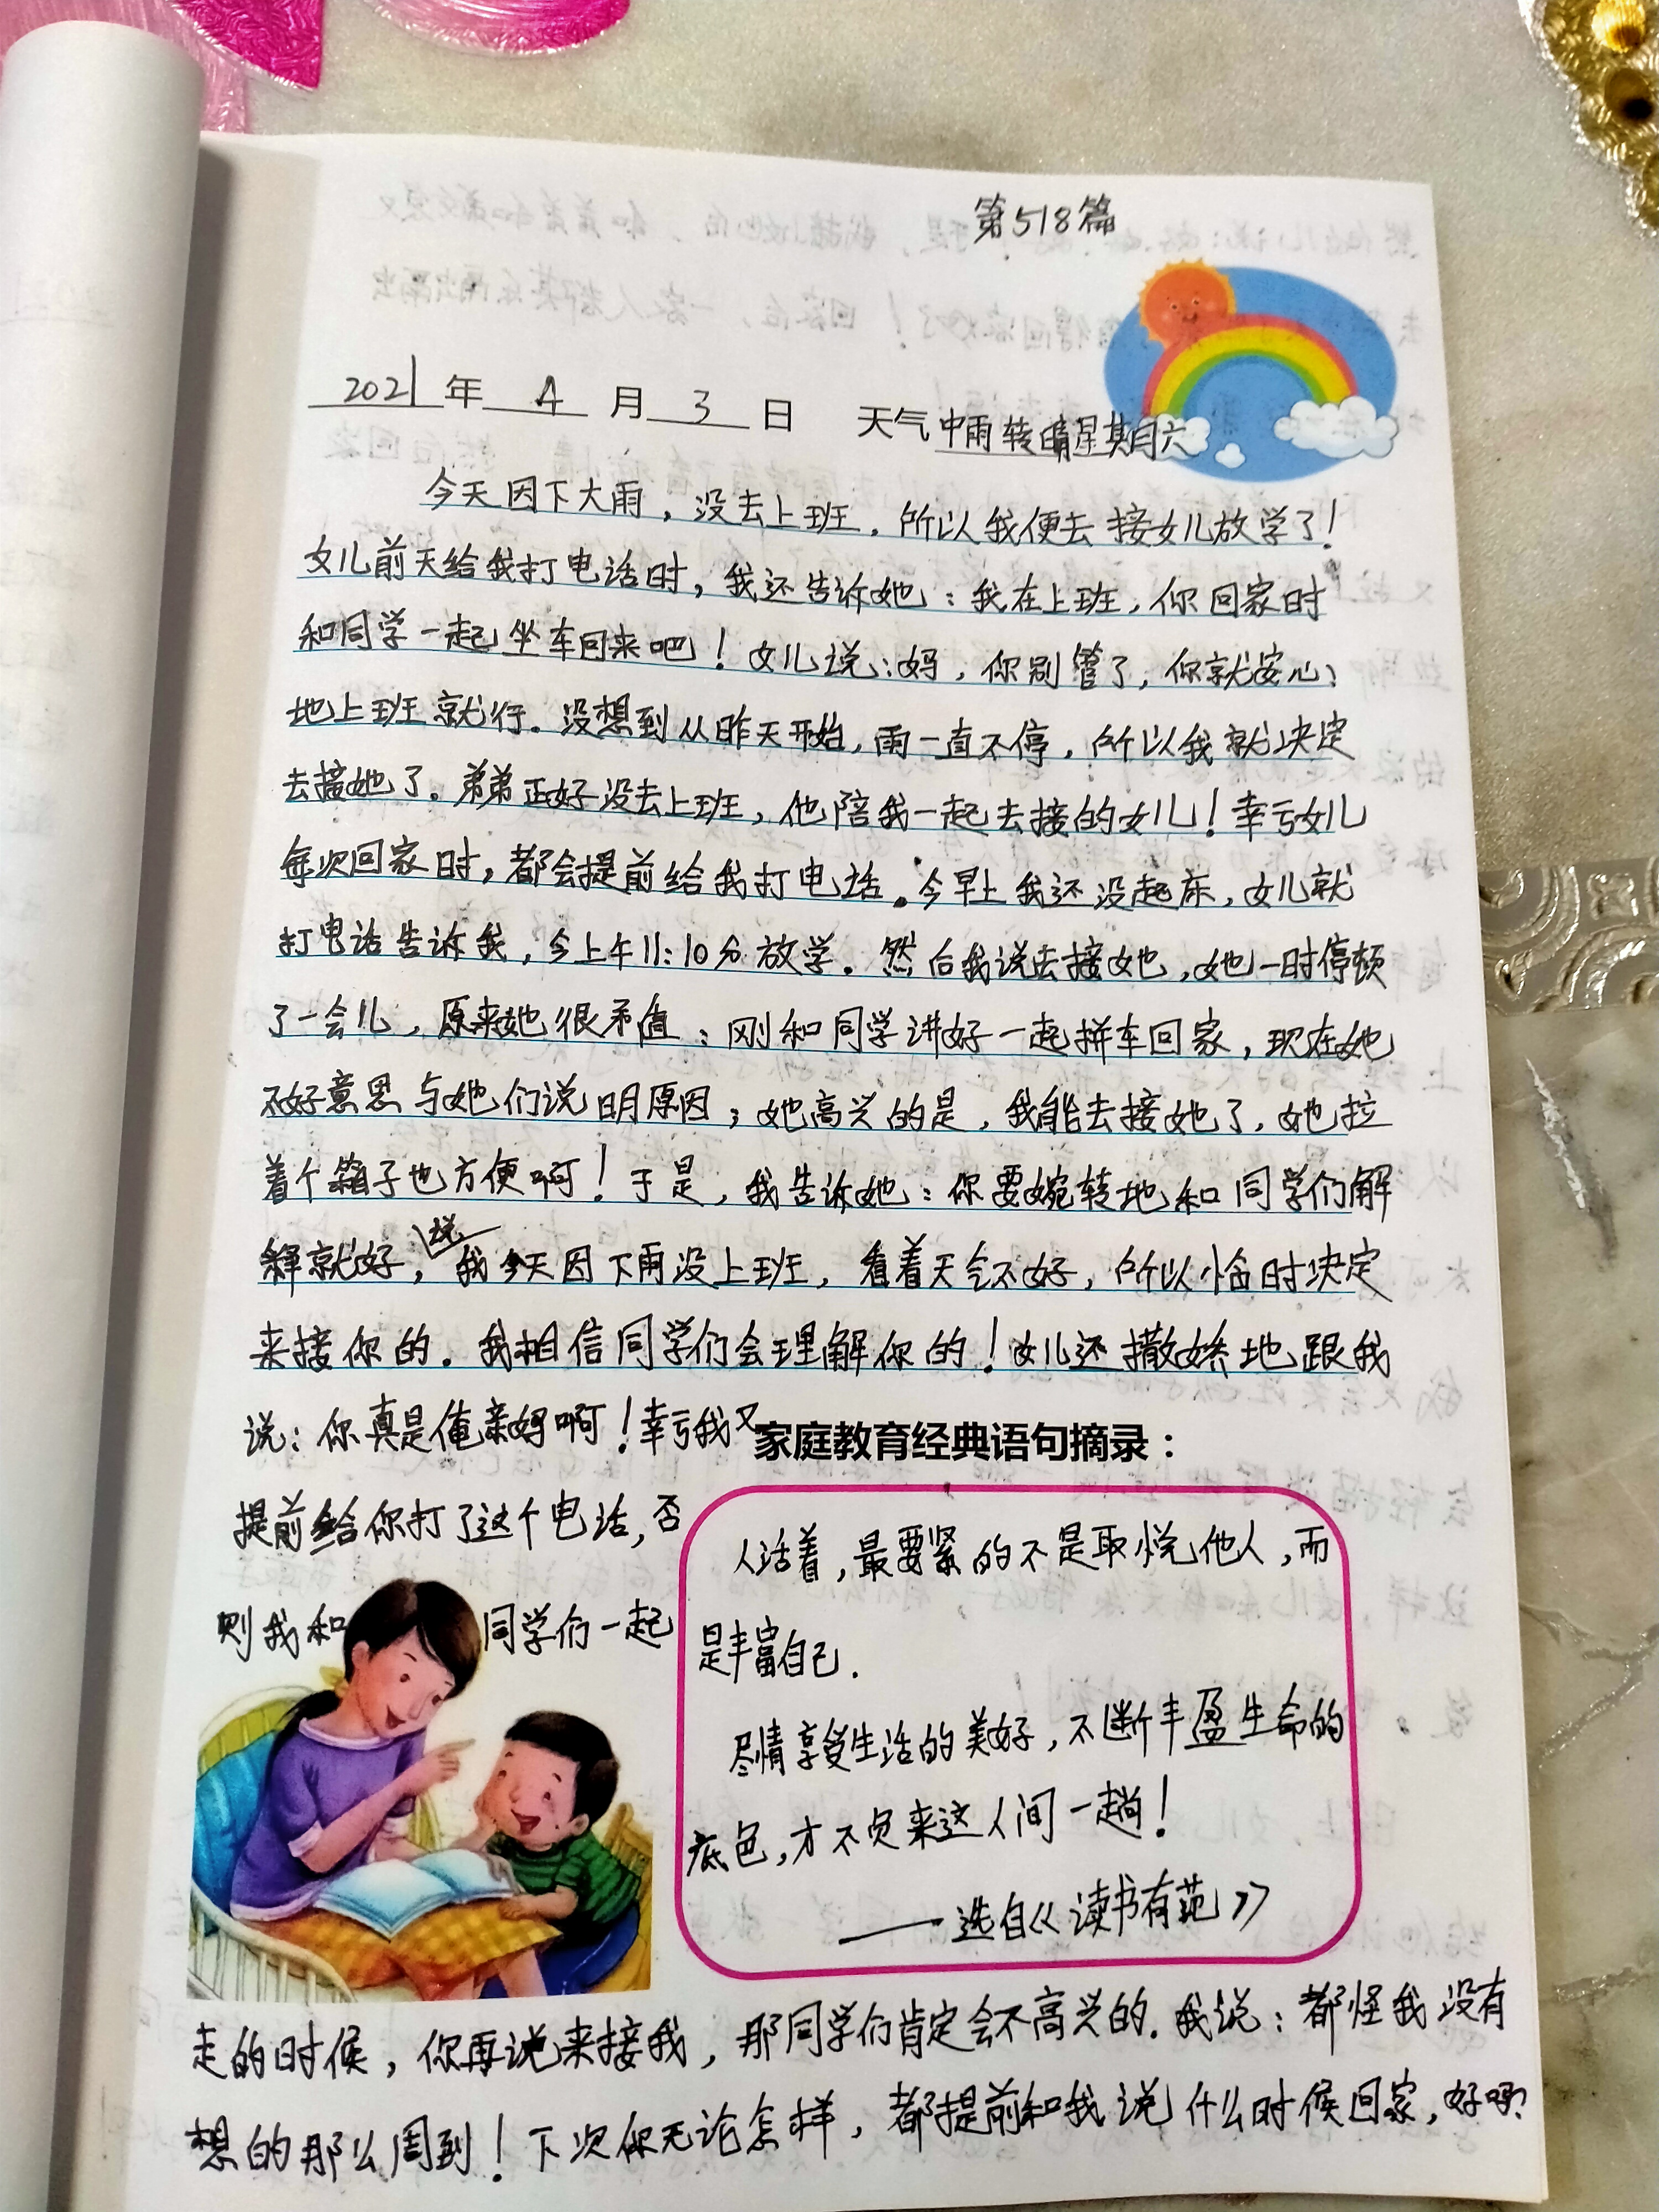 第518篇
2021年 4 月 3 日 天气中雨转晴星期六
今天因下大雨，没去上班，所以我便去接女儿放学了！
女儿前天给我打电话时，我还告诉她：我在上班，你回家时
和同学一起坐车回来吧！女儿说：妈，你别管了，你就安心
地上班就行。没想到从昨天开始，雨一直不停，所以我就决定
去接她了。弟弟正好没去上班，他陪我一起去接的女儿！幸亏女儿
每次回家时，都会提前给我打电话。今早上我还没起床，女儿就
打电话告诉我，今上午11:10分放学。然后我说去接她，她一时停顿
了一会儿，原来她很矛盾：刚和同学讲好一起拼车回家，现在她
不好意思与她们说明原因；她高兴的是，我能去接她了，她拉
着个箱子也方便啊！于是，我告诉她：你要婉转地和同学们解
释就好，说我今天因下雨没上班，看着天气不好，所以临时决定
来接你的。我相信同学们会理解你的！女儿还撒娇地跟我
说：你真是俺亲妈啊！幸亏我又
提前给你打了这个电话，否
则我和同学们一起
家庭教育经典语句摘录：
人活着，最要紧的不是取悦他人，而
是丰富自己.
尽情享受生活的美好，不断丰盈生命的
底色，才不负来这人间一趟！
——选自《读书有范》
走的时候，你再说来接我，那同学们肯定会不高兴的。我说：都怪我没有
想的那么周到！下次你无论怎样，都提前和我说什么时候回家，好吗？